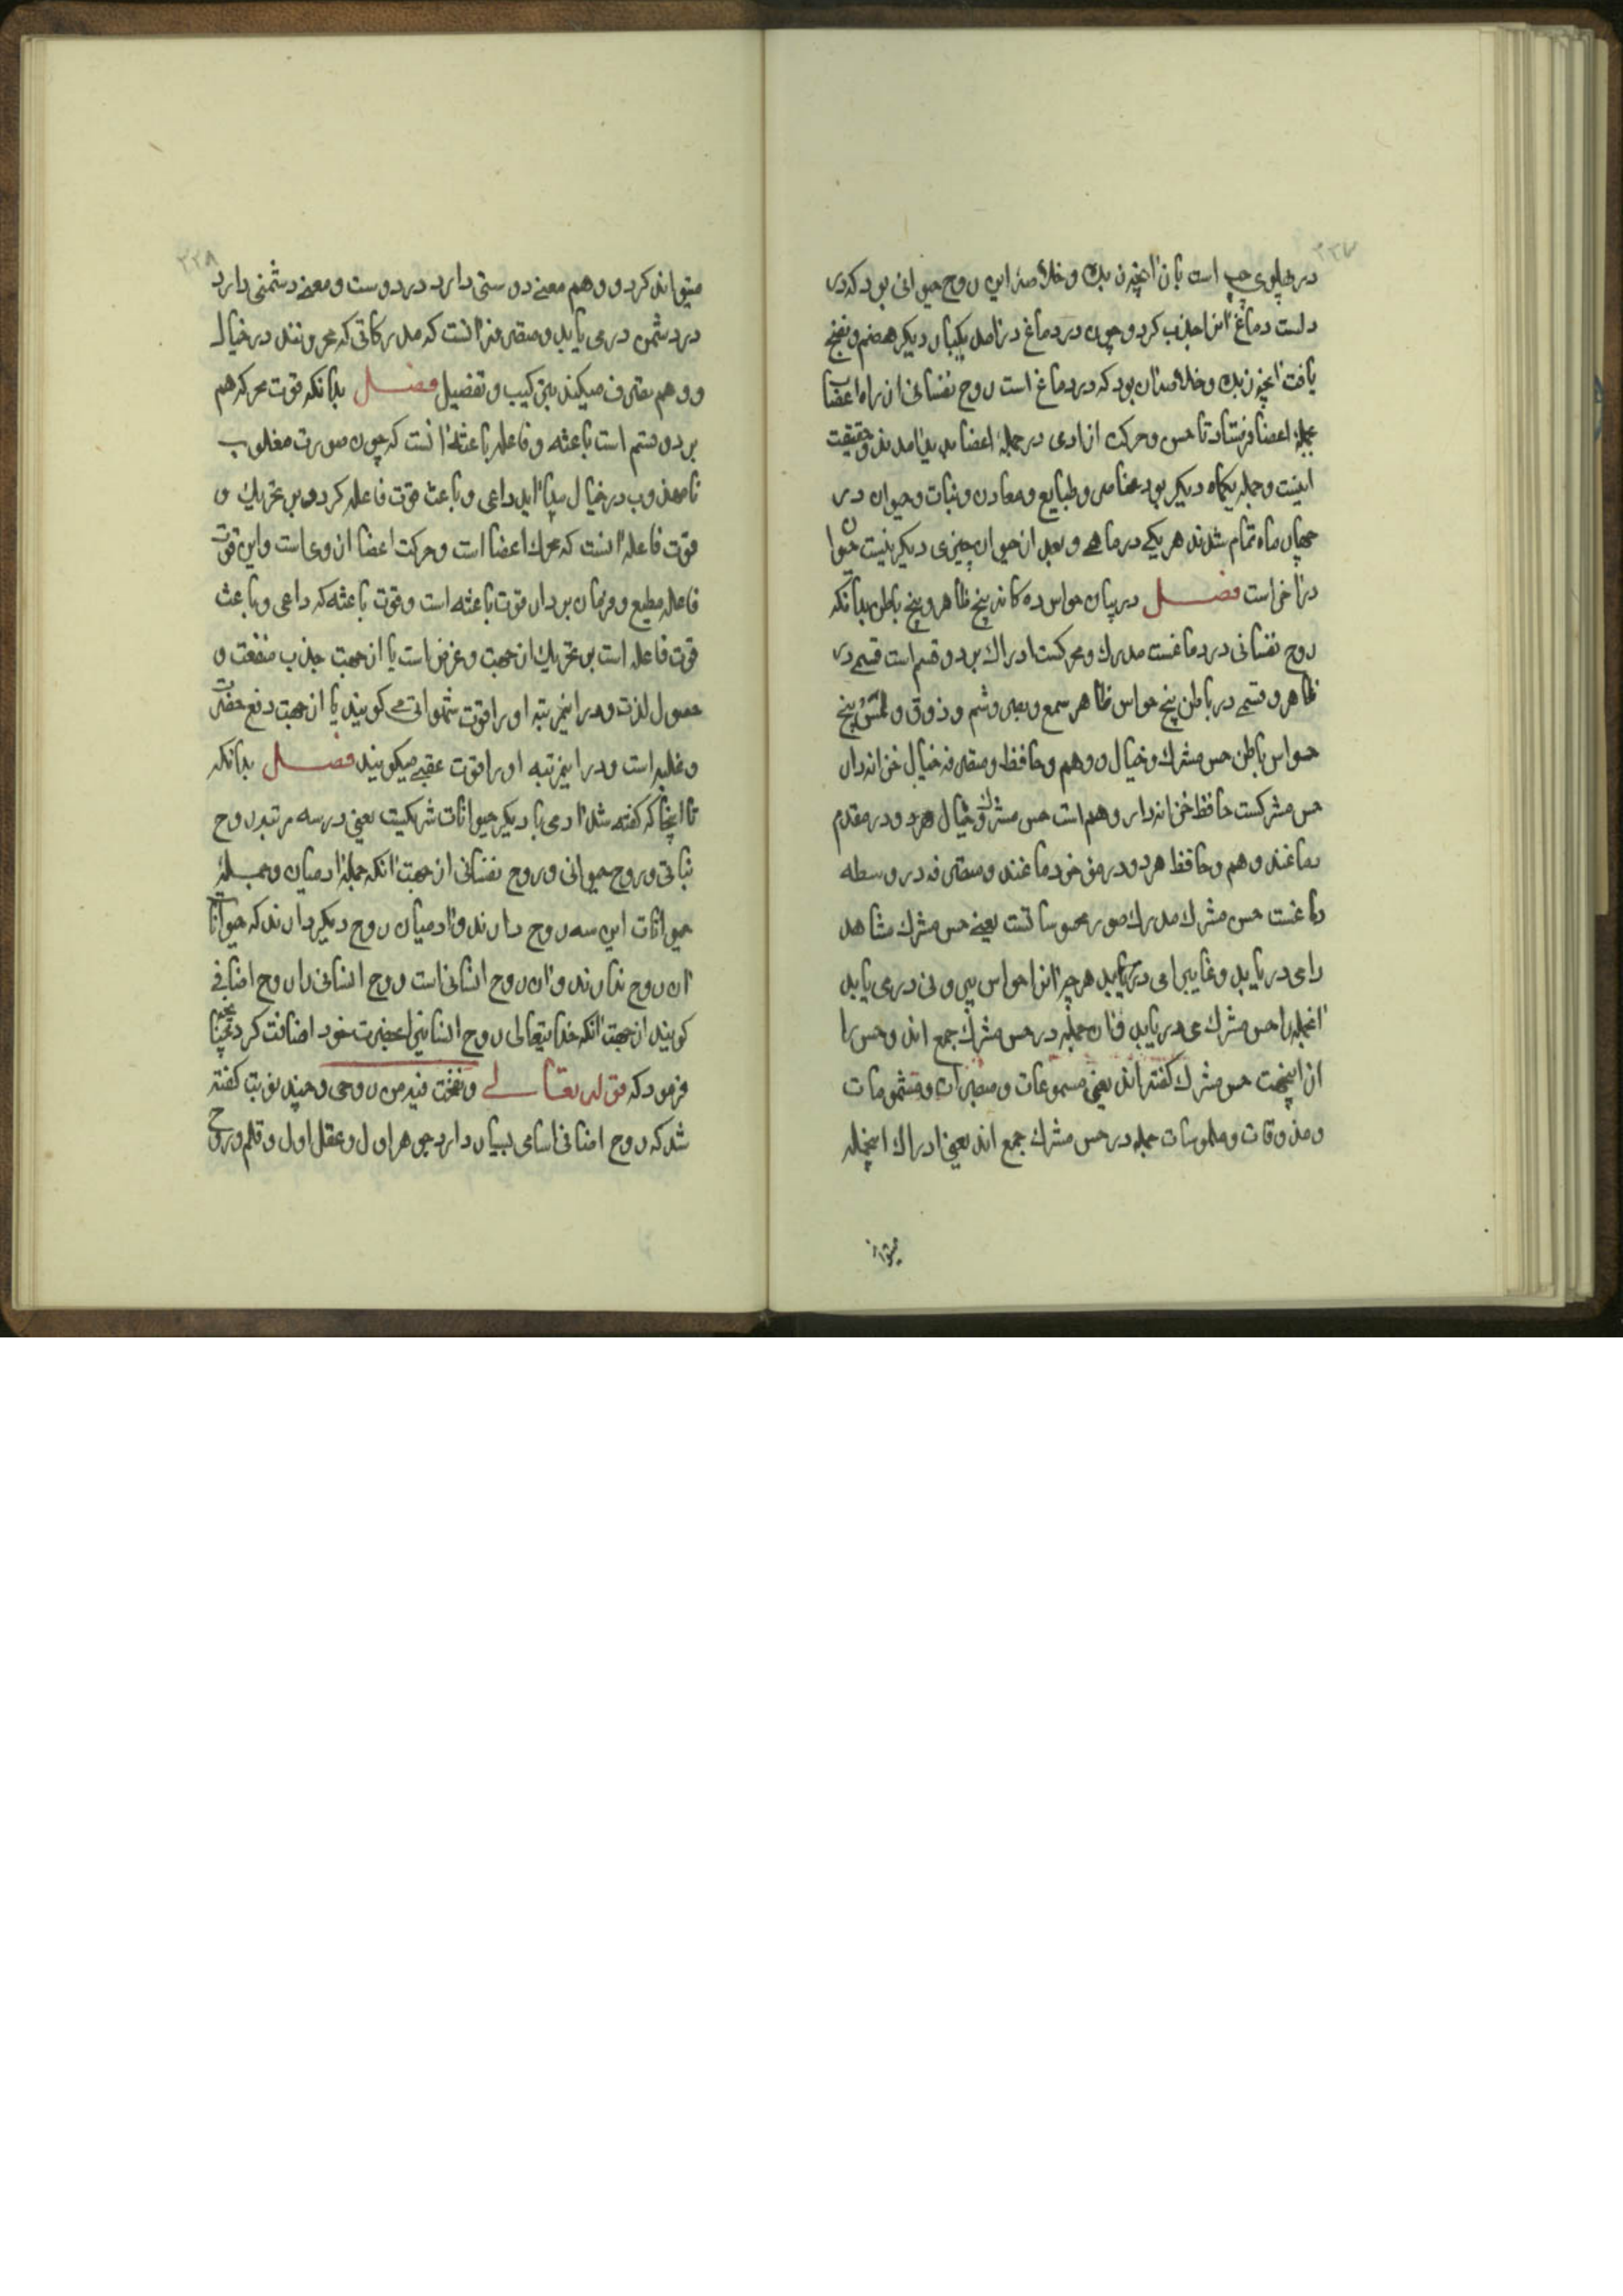 ۲۳۷
در پهلوی چپ است باز آنچه زبده و خلاصه این روح حیوانی بود که در
دلست دماغ آنرا جذب کرد و چون در دماغ درآمد یکبار دیگر هضم و نضج
یافت آنچه زبده و خلاصه آن بود که در دماغ است روح نفسانی از راه اعصاب
بجمله اعضا فرستاد تا حس و حرکت ارادی در جمله اعضا پدید آمدند و حقیقت
اینست و جمله یکماه دیگر بود عناصر و طبایع و معادن و نبات و حیوان در
چهار ماه تمام شدند هر یکی در ماهی و بعد از حیوان چیزی دیگر نیست حیوان
در آخر است فصل در بیان حواس ده کانه پنج ظاهر و پنج باطن بدانکه
روح نفسانی در دماغست مدرک و محرکست ادراک بر دو قسم است قسمی در
ظاهر و قسمی در باطن پنج حواس ظاهر سمع و بصر و شم و ذوق و لمس پنج
حواس باطن حس مشترک و خیال و وهم و حافظه و متصرفه خیال خزانه دار
حس مشترکست حافظ خزانه دار وهم است حس مشترک و خیال هرد و در مقدم
دماغند وهم و حافظ هر دو در موخر دماغند و متصرفه در وسطه
دماغست حس مشترک مدرک صور محسوساتست یعنی حس مشترک مشاهد
را می دریابد و غایب را می دریابد هر چه آنرا حواس بیرونی در می یابد
آنجمله را حس مشترک می دریابد و آن جمله در حس مشترک جمع اند و حس را
از اینجهت حس مشترک گفته اند یعنی مسموعات و مبصرات و مشمومات
و مذوقات و ملموسات جمله در حس مشترک جمع اند یعنی ادراک اینجمله
میتواند
۲۳۸
میتواند کرد و وهم معنی دوستی دارد در دوست و معنی دشمنی دارد
در دشمن در می یابد و متصرفه آنست که مدرکاتی که مخزونند در خیال
و وهم تصرف میکند بترکیب و تفصیل فصل بدانکه قوت محرکه هم
بر دو قسم است باعثه و فاعله باعثه آنست که چون صورت مغلوب
نامهذوب در خیال پیدا آید داعی و باعث قوت فاعله کردد بر تحریک و
قوت فاعله آنست که محرک اعضا است و حرکت اعضا از وی است و این قوت
فاعله مطیع و فرمان بردار قوت باعثه است و قوت باعثه که داعی و باعث
قوت فاعله است بر تحریک از جهت و غرض است یا از جهت جذب منفعت و
حصول لذت و در اینمرتبه او را قوت شهوانی می کویند یا از جهت دفع مضرت
و غلبه است و در اینمرتبه او را قوت غضبی میکویند فصل بدانکه
تا اینجا که کفته شد آدمی با دیگر حیوانات شریکیت یعنی در سه مرتبه روح
نباتی و روح حیوانی و روح نفسانی از جهت آنکه جمله آدمیان و جمله
حیوانات این سه روح دارند و آدمیان روح دیگر دارند که حیوانات
آن روح ندارند و آن روح انسانی است و روح انسانی را روح اضافی
کویند از جهت آنکه خدایتعالی روح انسانی را بحضرت خود اضافت کرد چنانچه
فرمود که قوله تعالی ونفخت فیه من روحی و چند نوبت کفته
شد که روح اضافی اسامی بسیار دارد جوهر اول و عقل اول و قلم و روح